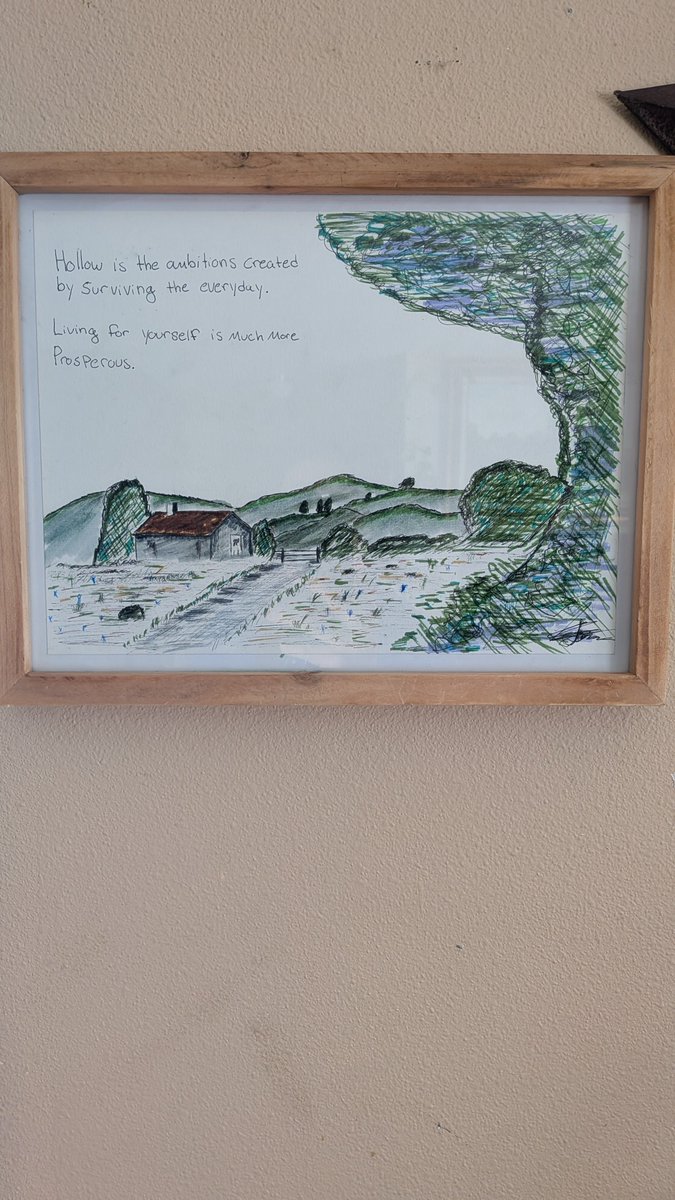 Hollow is the ambitions created
by surviving the everyday.
Living for yourself is Much More
Prosperous.